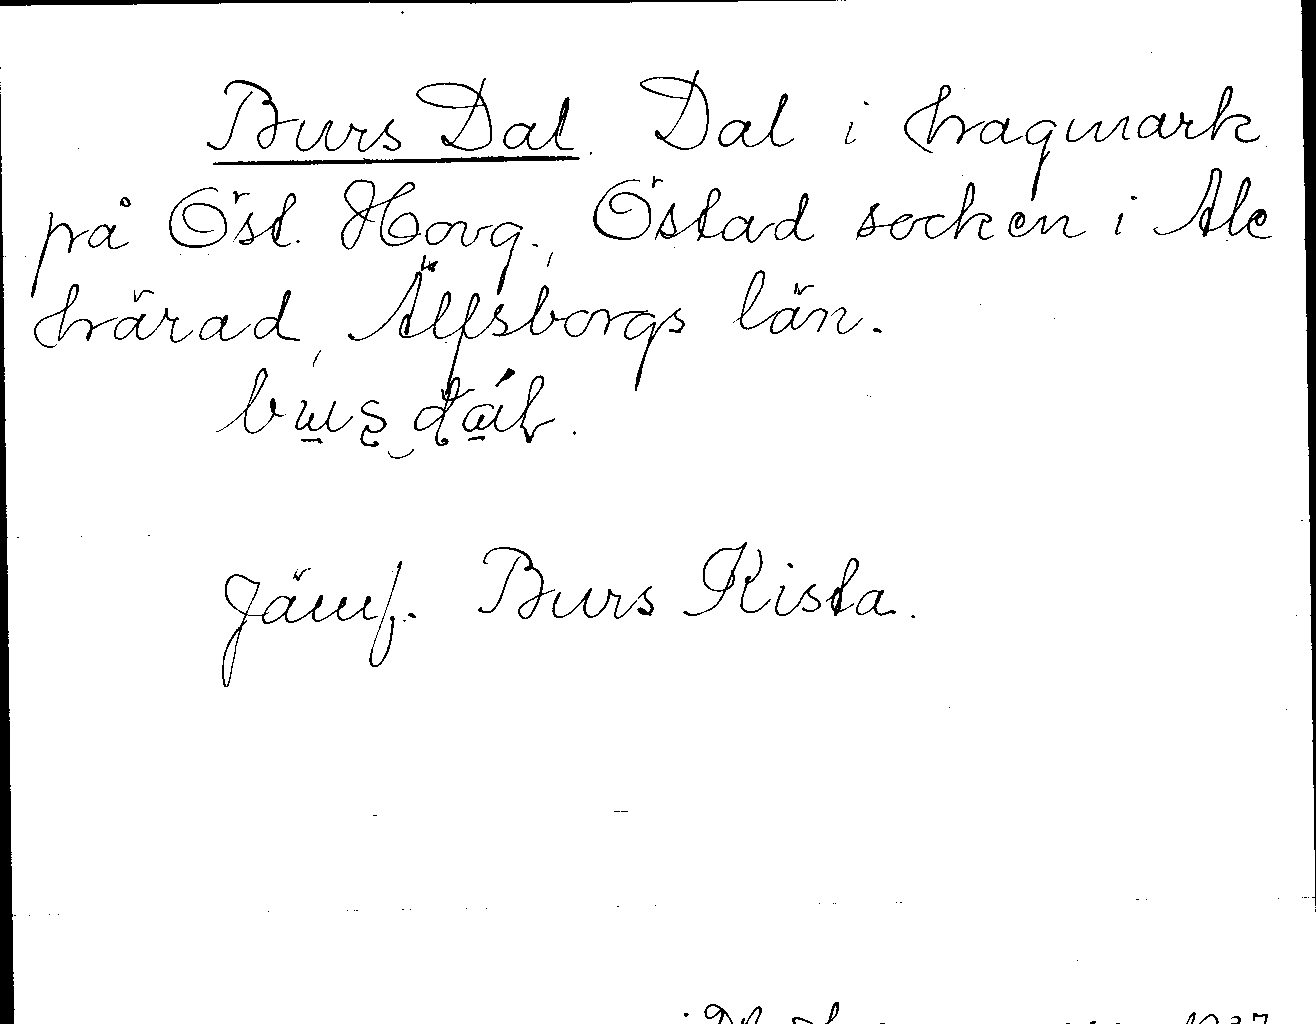 Burs Dal. Dal i hagmark
på Öst. Hovg., Östad socken i Ale
härad, Älfsborgs län.

Jämf. Burs Kista.